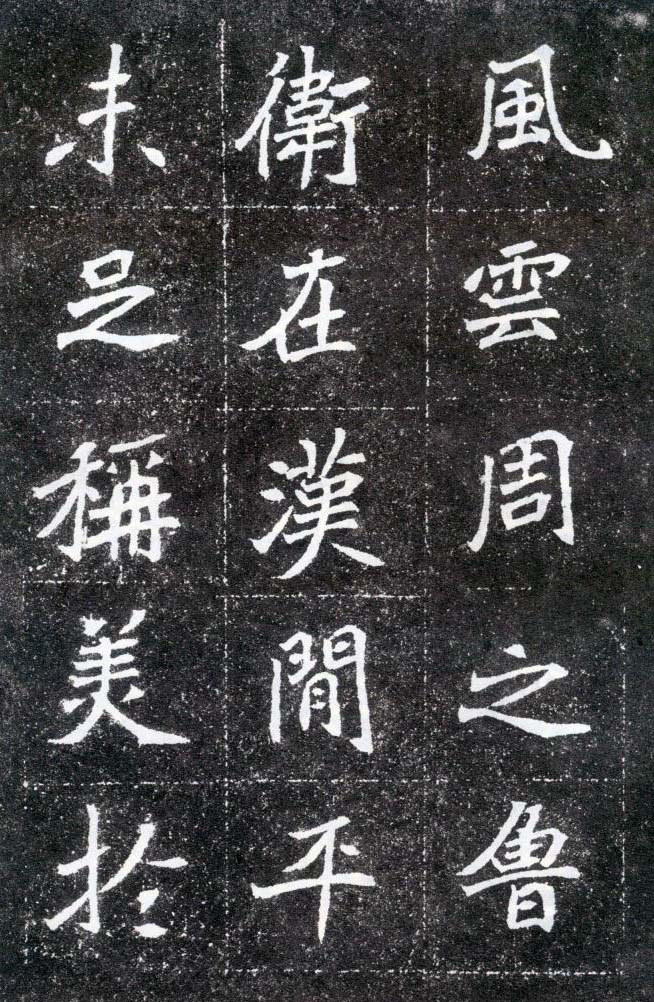 風雲周之魯
衛在漢間平
未足稱美於